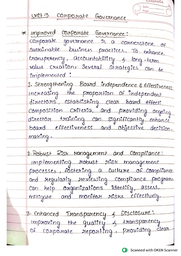 Unit-3 Corporate Governance
* Improved Corporate Governance:
Corporate governance is a cornerstone of
sustainable business practices. To enhance
transparency, accountability & long-term
value creation several strategies can be
implemented:
1. Strengthening Board Independence & Effectiveness
increasing the proportion of independent
directors, establishing clear board
composition criteria, and providing ongoing
director training can significantly enhance
board effectiveness and objective decision
making.
2. Robust Risk Management and Compliance:
implementing robust risk management
processes, fostering a culture of compliance
and regularly reviewing compliance programs
can help organizations identify, assess,
mitigate and monitor risks effectively.
3. Enhanced Transparency & Disclosure:
improving the quality & transparency
of corporate reporting, providing clear
Scanned with OKEN Scanner